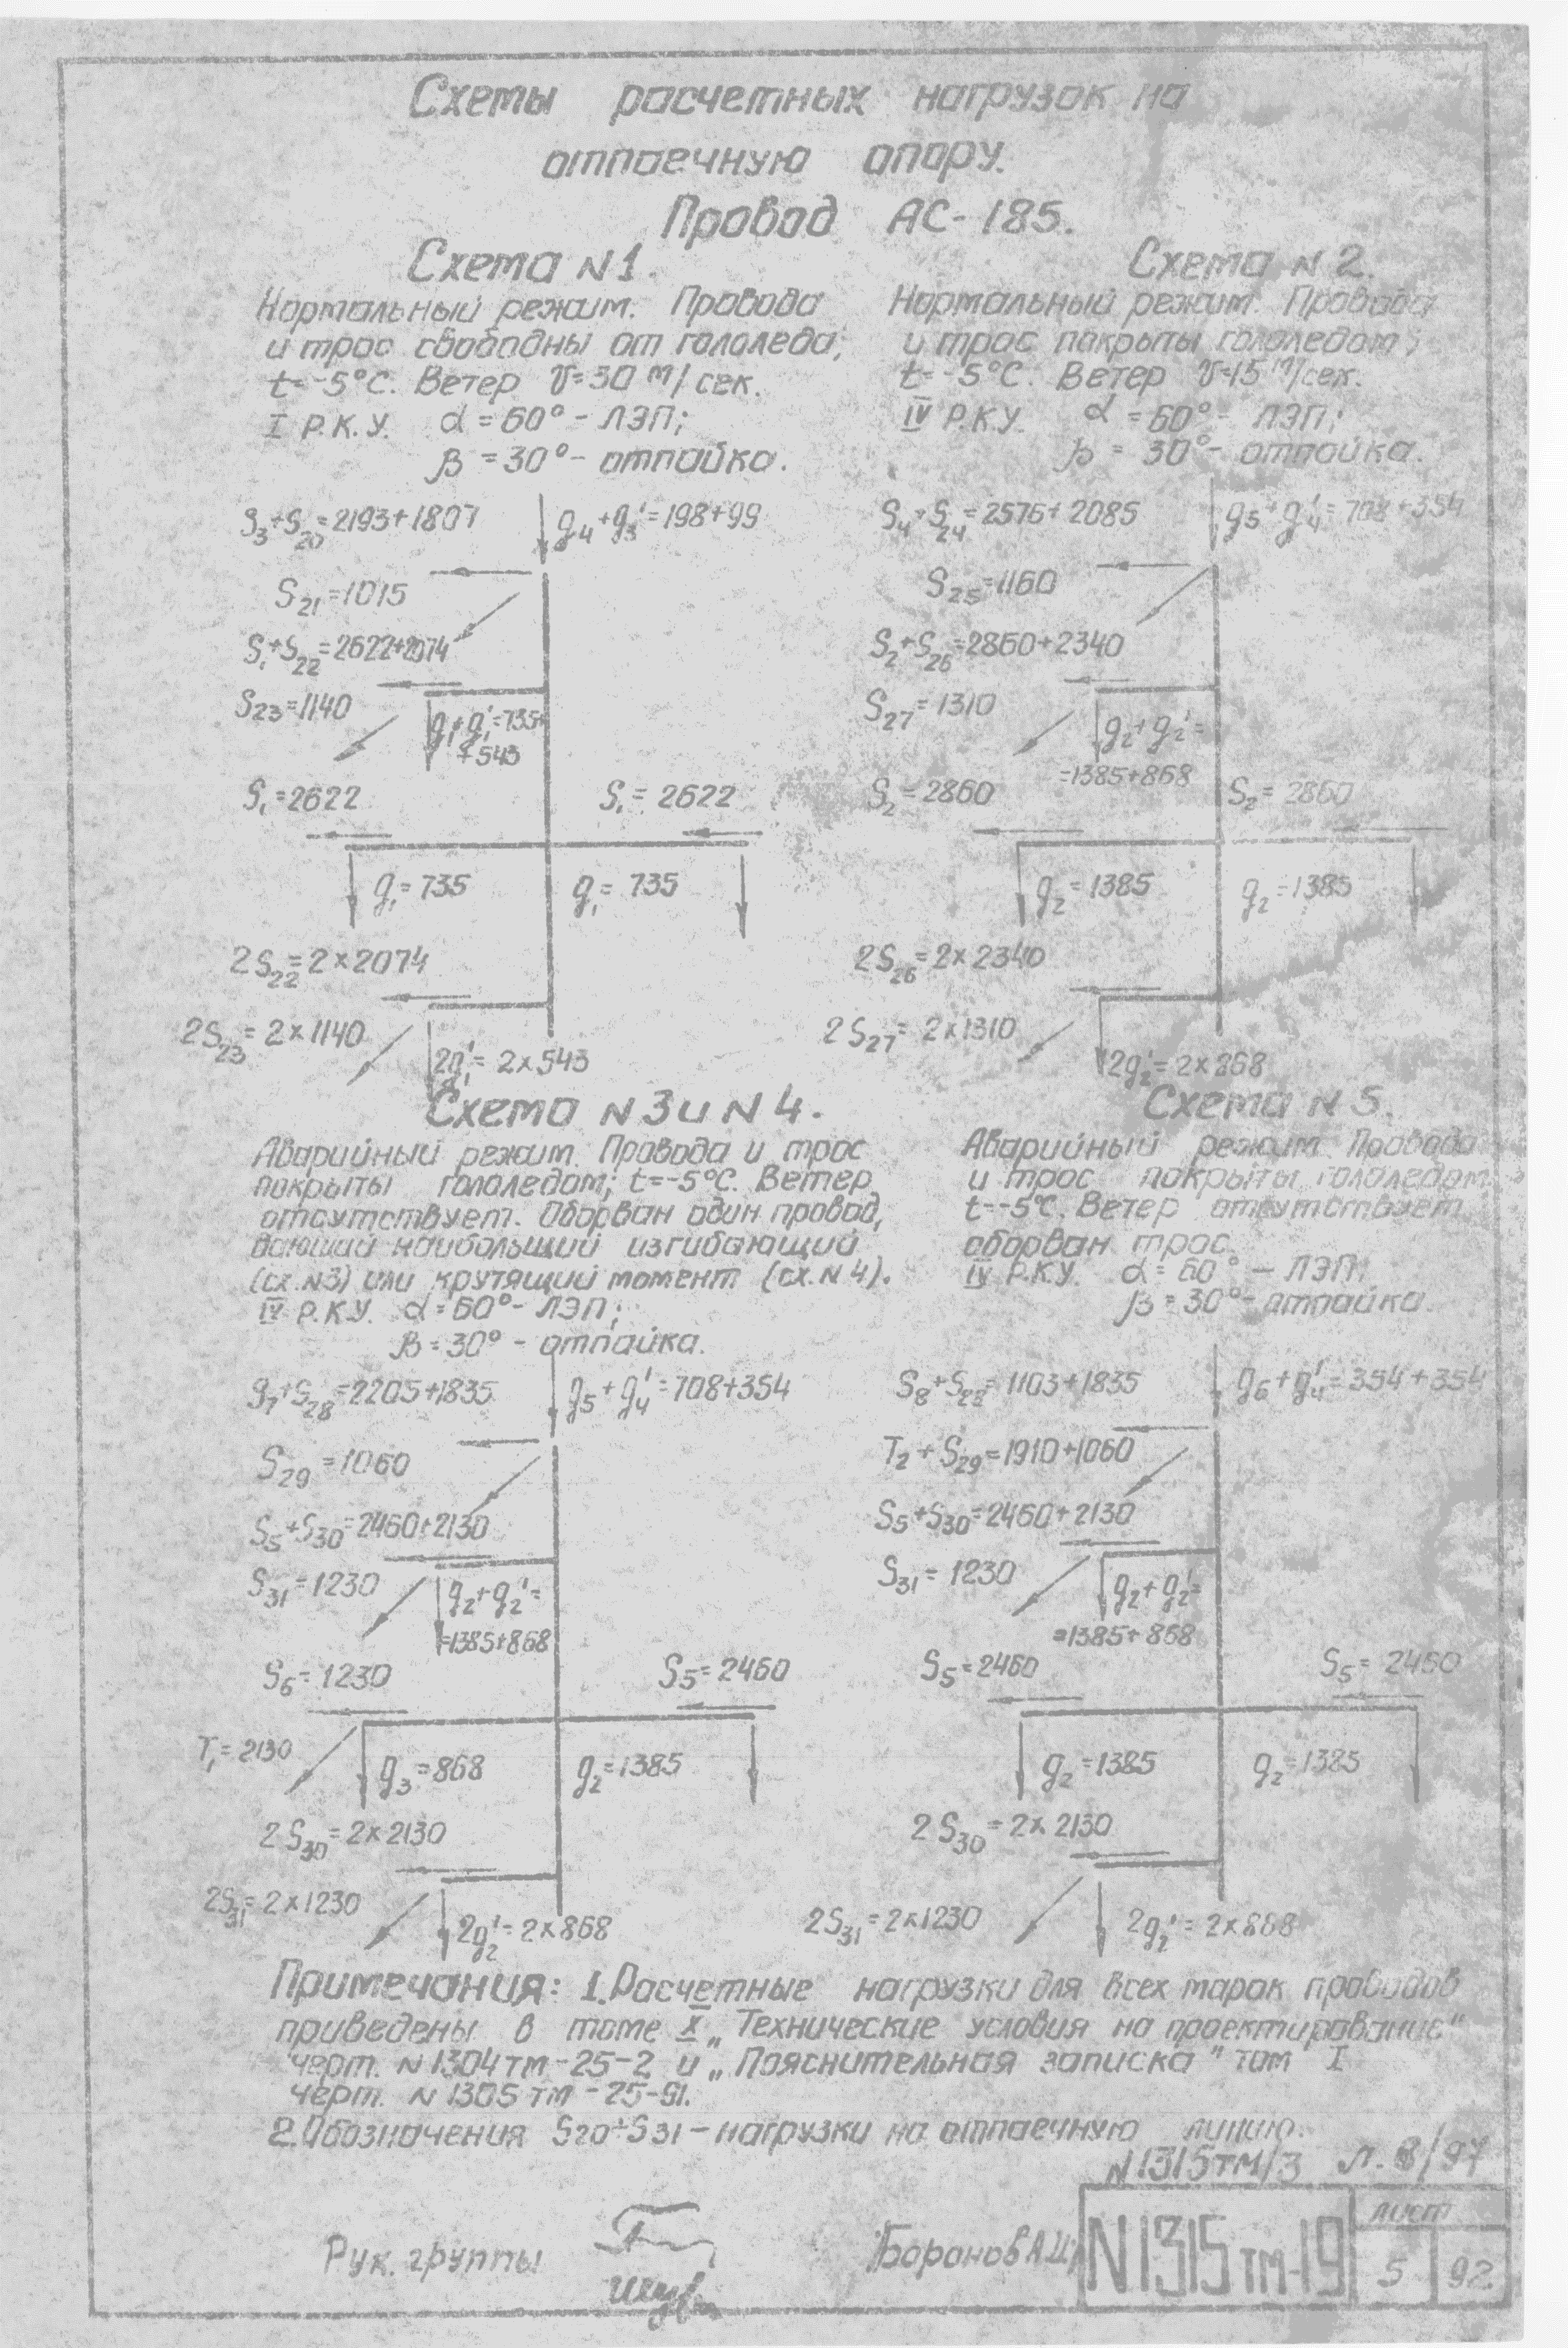 Схемы расчетных нагрузок на
отпаечную опору.
Провод АС-185.
Схема N 1.
Нормальный режим. Провода
и трос свободны от гололеда;
t=-5°С. Ветер V=30 м/сек.
I Р.К.У. α=60°- ЛЭП;
β=30°- отпайка.
S₃+S₂₀=2193+1807
g₄+g₃'=198+99
S₂₁=1015
S₁+S₂₂=2622+2074
S₂₃=1140
g₁+g₁'=735+
+543
S₁=2622
S₁=2622
g₁=735
g₁=735
2S₂₂=2×2074
2S₂₃=2×1140
2g₁'=2×543
Схема N 2.
Нормальный режим. Провода
и трос покрыты гололедом;
t=-5°С. Ветер V=15 м/сек.
IV Р.К.У. α=60°- ЛЭП;
β=30°- отпайка.
S₄+S₂₄=2576+2085
g₅+g₄'=708+354
S₂₅=1160
S₂+S₂₆=2860+2340
S₂₇=1310
g₂+g₂'=
=1385+868
S₂=2860
S₂=2860
g₂=1385
g₂=1385
2S₂₆=2×2340
2S₂₇=2×1310
2g₂'=2×868
Схема N 3 и N 4.
Аварийный режим. Провода и трос
покрыты гололедом; t=-5°С. Ветер
отсутствует. Оборван один провод,
дающий наибольший изгибающий
(сх.N3) или крутящий момент (сх.N4).
IV Р.К.У. α=60°- ЛЭП;
β=30°- отпайка.
S₇+S₂₈=2205+1835
g₅+g₄'=708+354
S₂₉=1060
S₅+S₃₀=2460+2130
S₃₁=1230
g₂+g₂'=
=1385+868
S₆=1230
S₅=2460
T₁=2130
g₃=868
g₂=1385
2S₃₀=2×2130
2S₃₁=2×1230
2g₂'=2×868
Схема N 5.
Аварийный режим. Провода
и трос покрыты гололедом
t=-5°С. Ветер отсутствует,
оборван трос.
IV Р.К.У. α=60°- ЛЭП;
β=30°- отпайка.
S₈+S₂₈=1103+1835
g₆+g₄'=354+354
T₂+S₂₉=1910+1060
S₅+S₃₀=2460+2130
S₃₁=1230
g₂+g₂'=
=1385+868
S₅=2460
S₅=2460
g₂=1385
g₂=1385
2S₃₀=2×2130
2S₃₁=2×1230
2g₂'=2×868
Примечания: 1. Расчетные нагрузки для всех марок проводов
приведены в томе X „Технические условия на проектирование"
черт. N 1304тм-25-2 и „Пояснительная записка" том I
черт. N 1305тм-25-91.
2. Обозначения S20÷S31 - нагрузки на отпаечную линию.
N1315тм/3 л. 8/97
Рук. группы
N1315тм-19
лист
5
92.